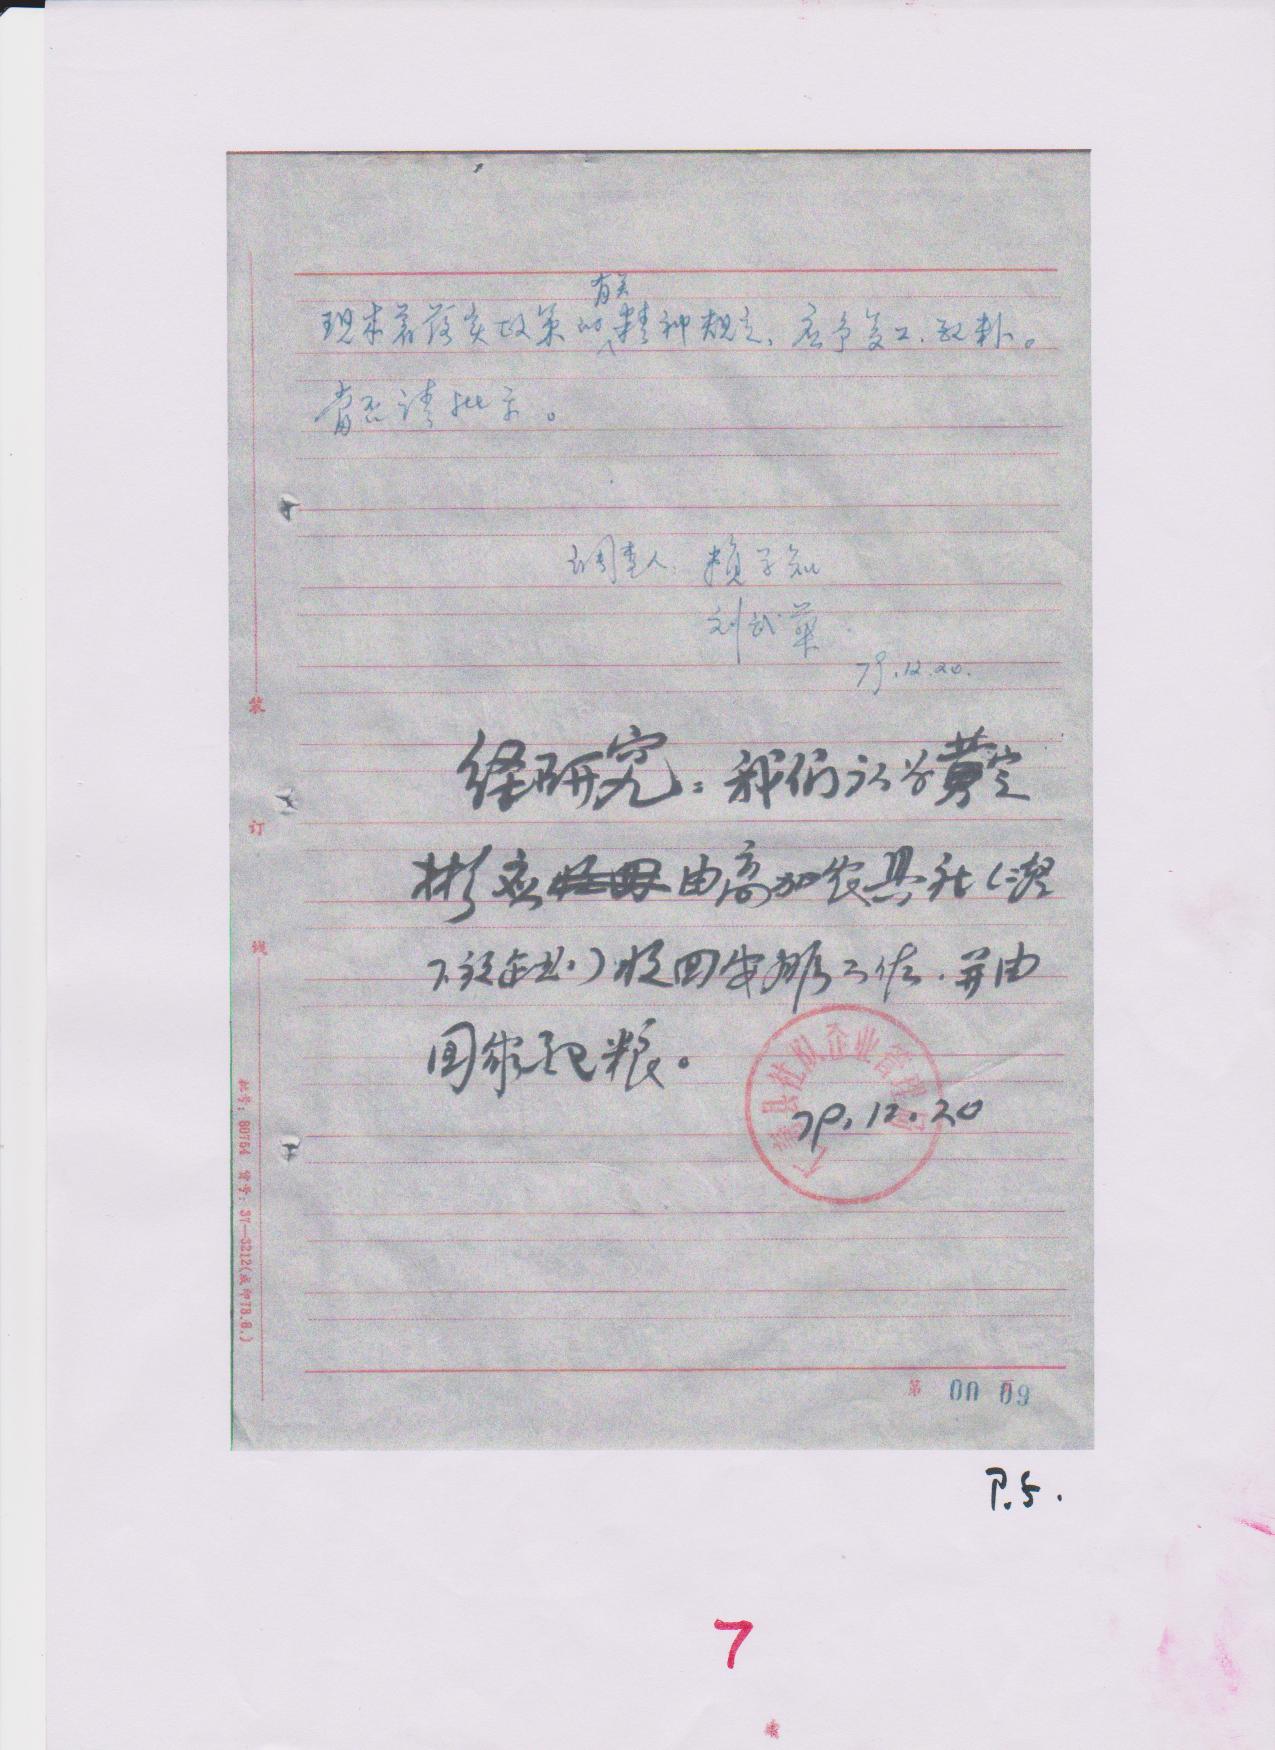 有关
现本着落实政策的精神规定，应予复工、改补。
当否请批示。
调查人：赖子知
刘武华
79.12.20.
经研究：我们认为黄定
彬应由高加农具社(
企业)收回安排工作.并由
国家配粮。
县社队企业管理局
79.12.20
装
订
线
批号：80754 货号：37—3212(成印78.8.)
第 00 09
P.5.
7